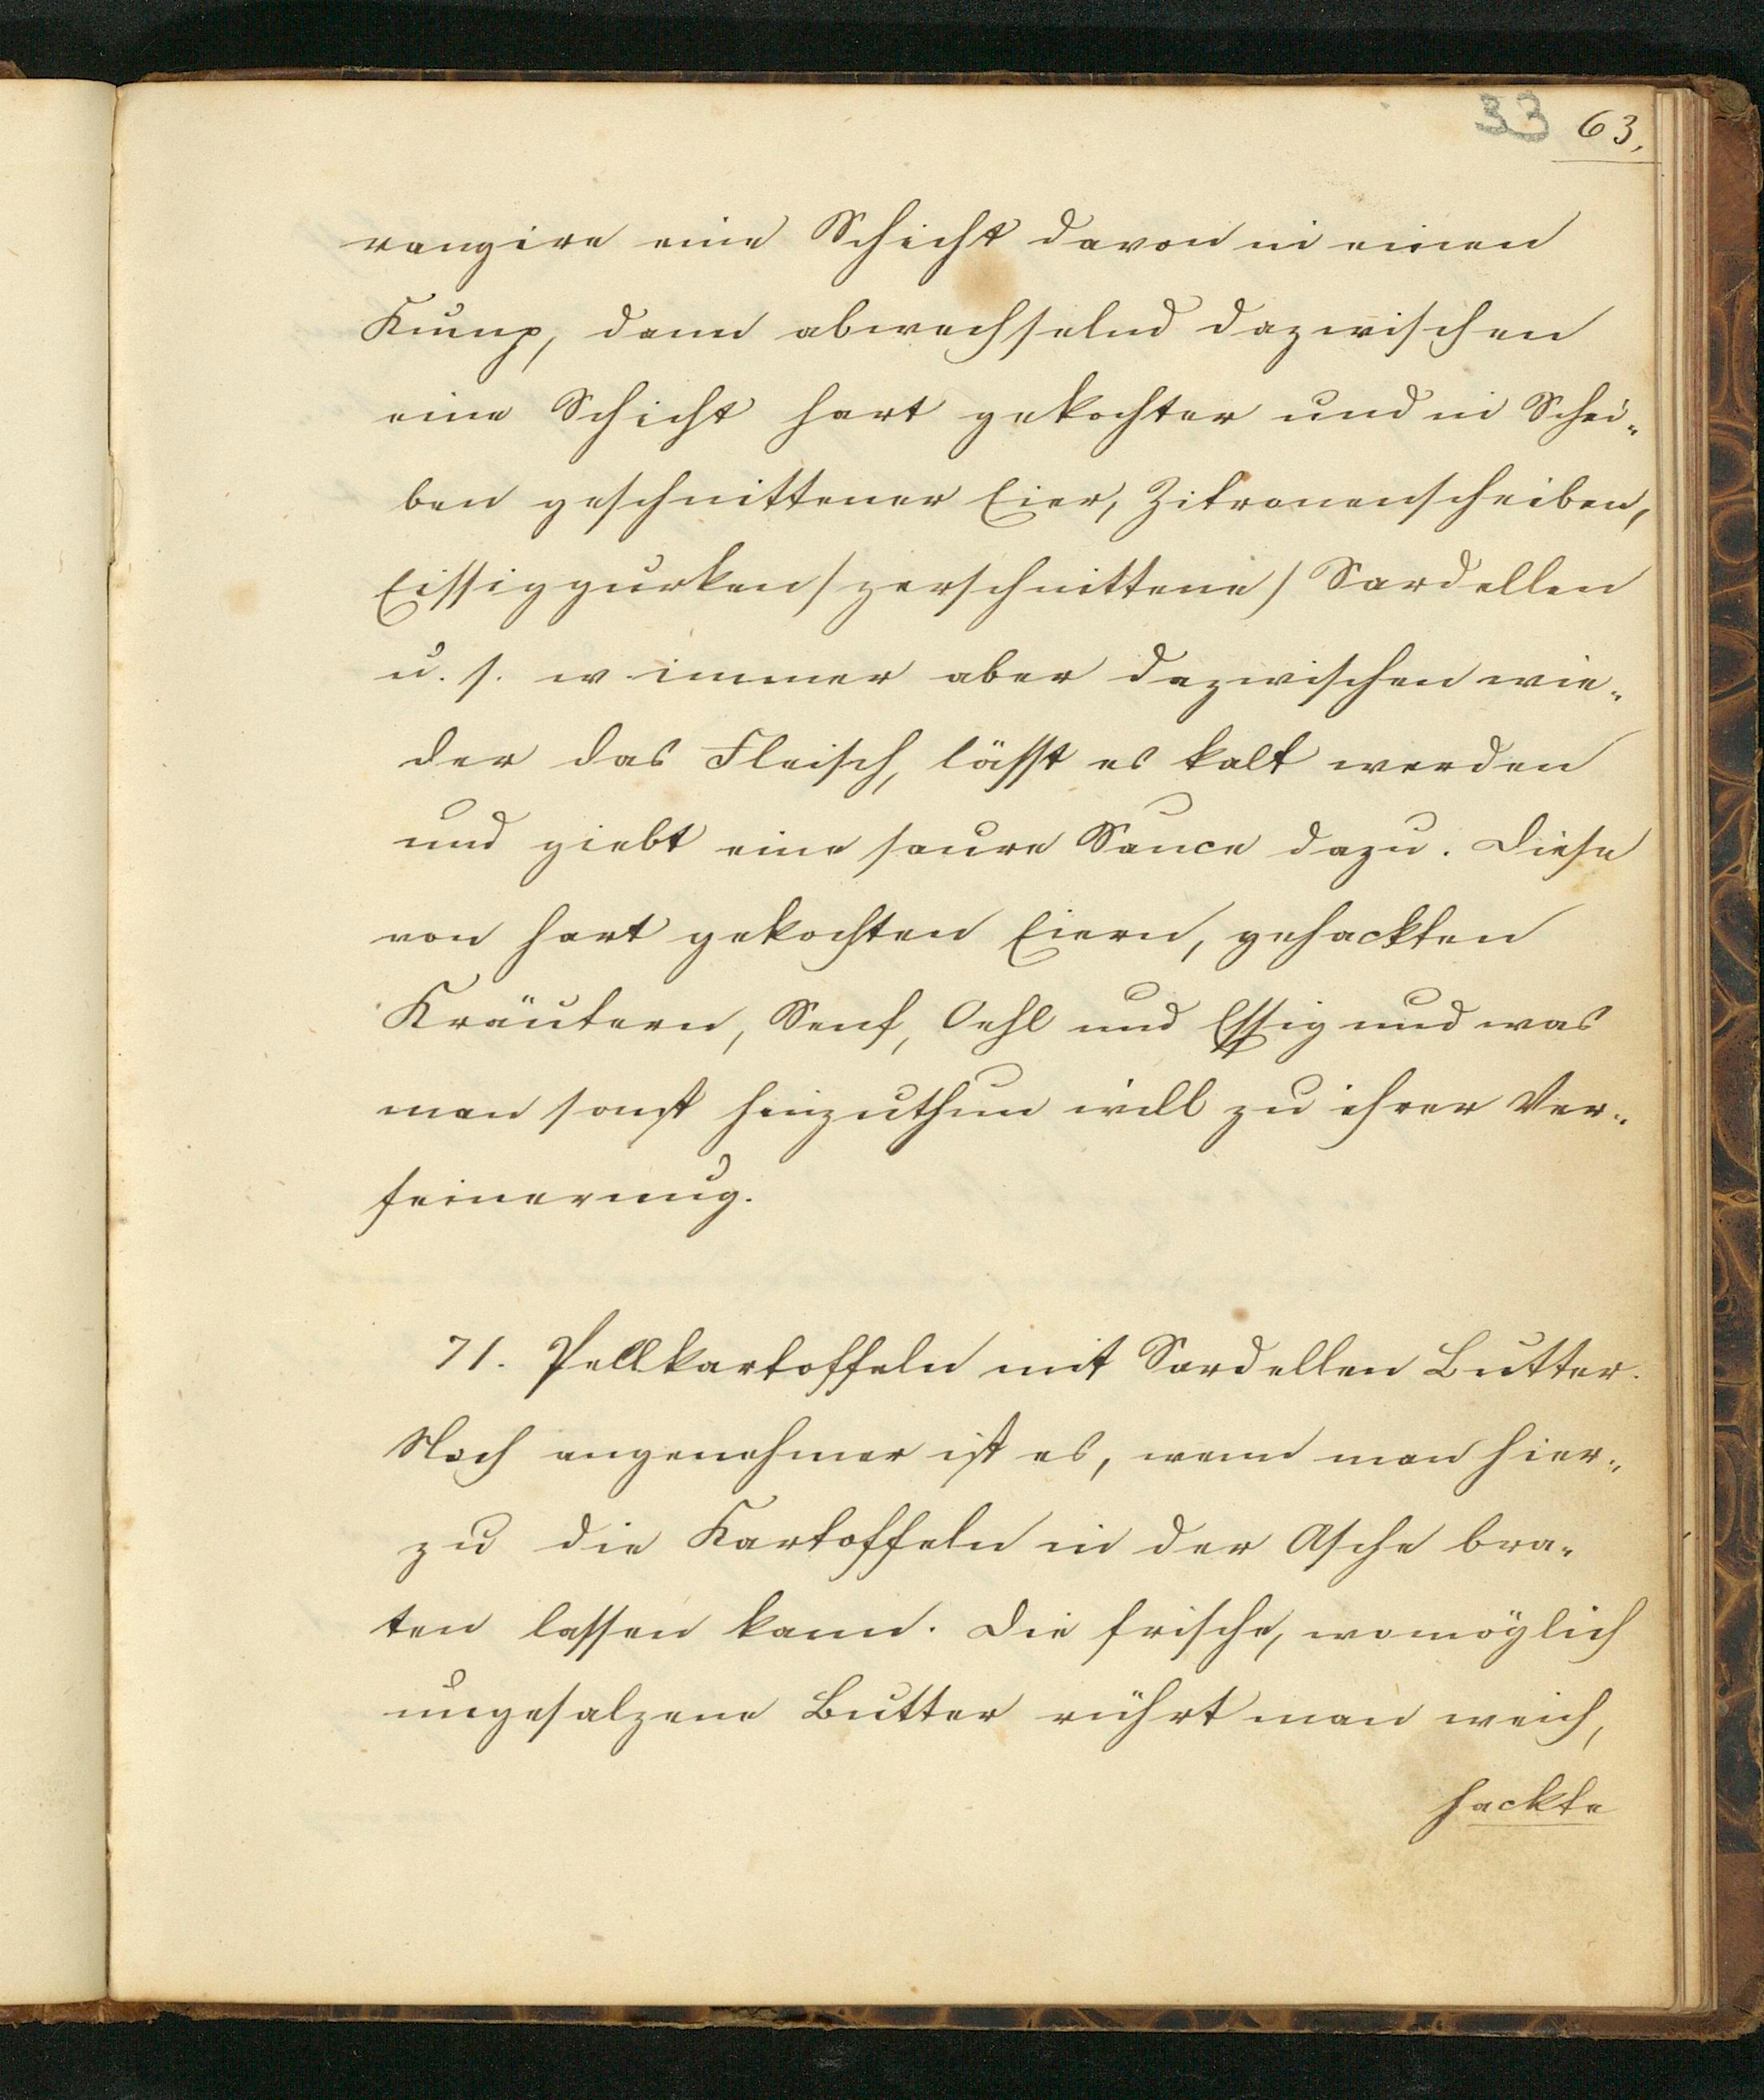 33 63,
rangire eine Schicht davon in einen
Kump, dann abwechselnd dazwischen
eine Schicht hart gekochter und in Schei„
ben geschnittener Eier, Zitronenscheiben,
Eissiggurken /zerschnittene/ Sardellen
u. s. w immer aber dazwischen wie„
der das Fleisch, lässt es kalt werden
und giebt eine saure Sauce dazu. Diese
von hart gekochten Eiern, gehackten
Kräutern, Senf, Oehl und Essig und was
man sonst hinzuthun will zu ihrer Ver„
feinerung.
71. Pellkartoffeln mit Sardellen Butter.
Noch angenehmer ist es, wenn man hier„
zu die Kartoffeln in der Asche bra„
ten lassen kann. Die frische, womöglich
ungesalzene Butter rührt man weich,
hackte